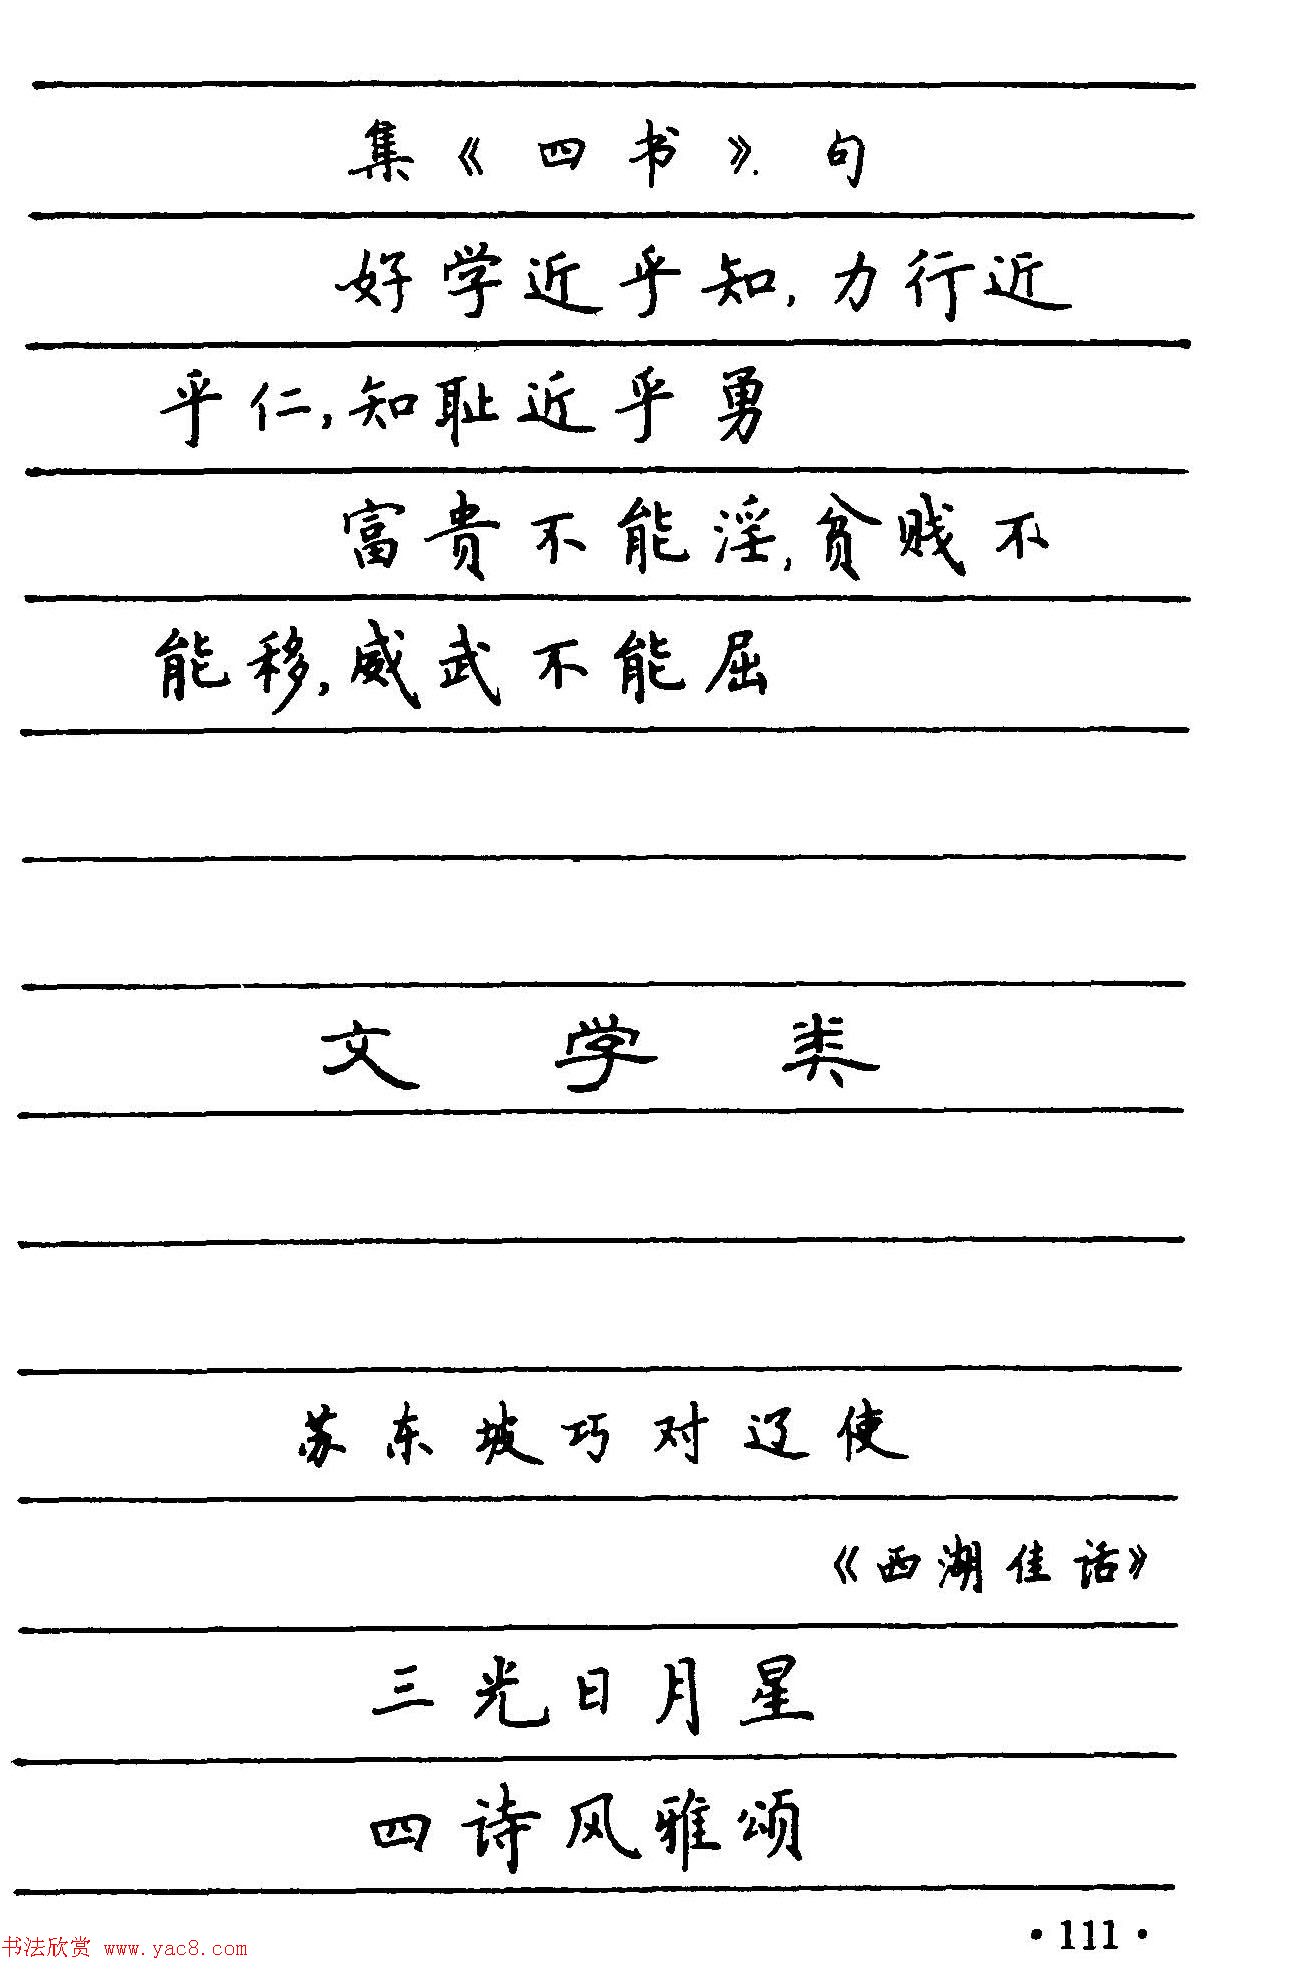 集《四书》句
好学近乎知,力行近
乎仁,知耻近乎勇
富贵不能淫,贫贱不
能移,威武不能屈
文学类
苏东坡巧对辽使
《西湖佳话》
三光日月星
四诗风雅颂
·111·
书法欣赏 www.yac8.com